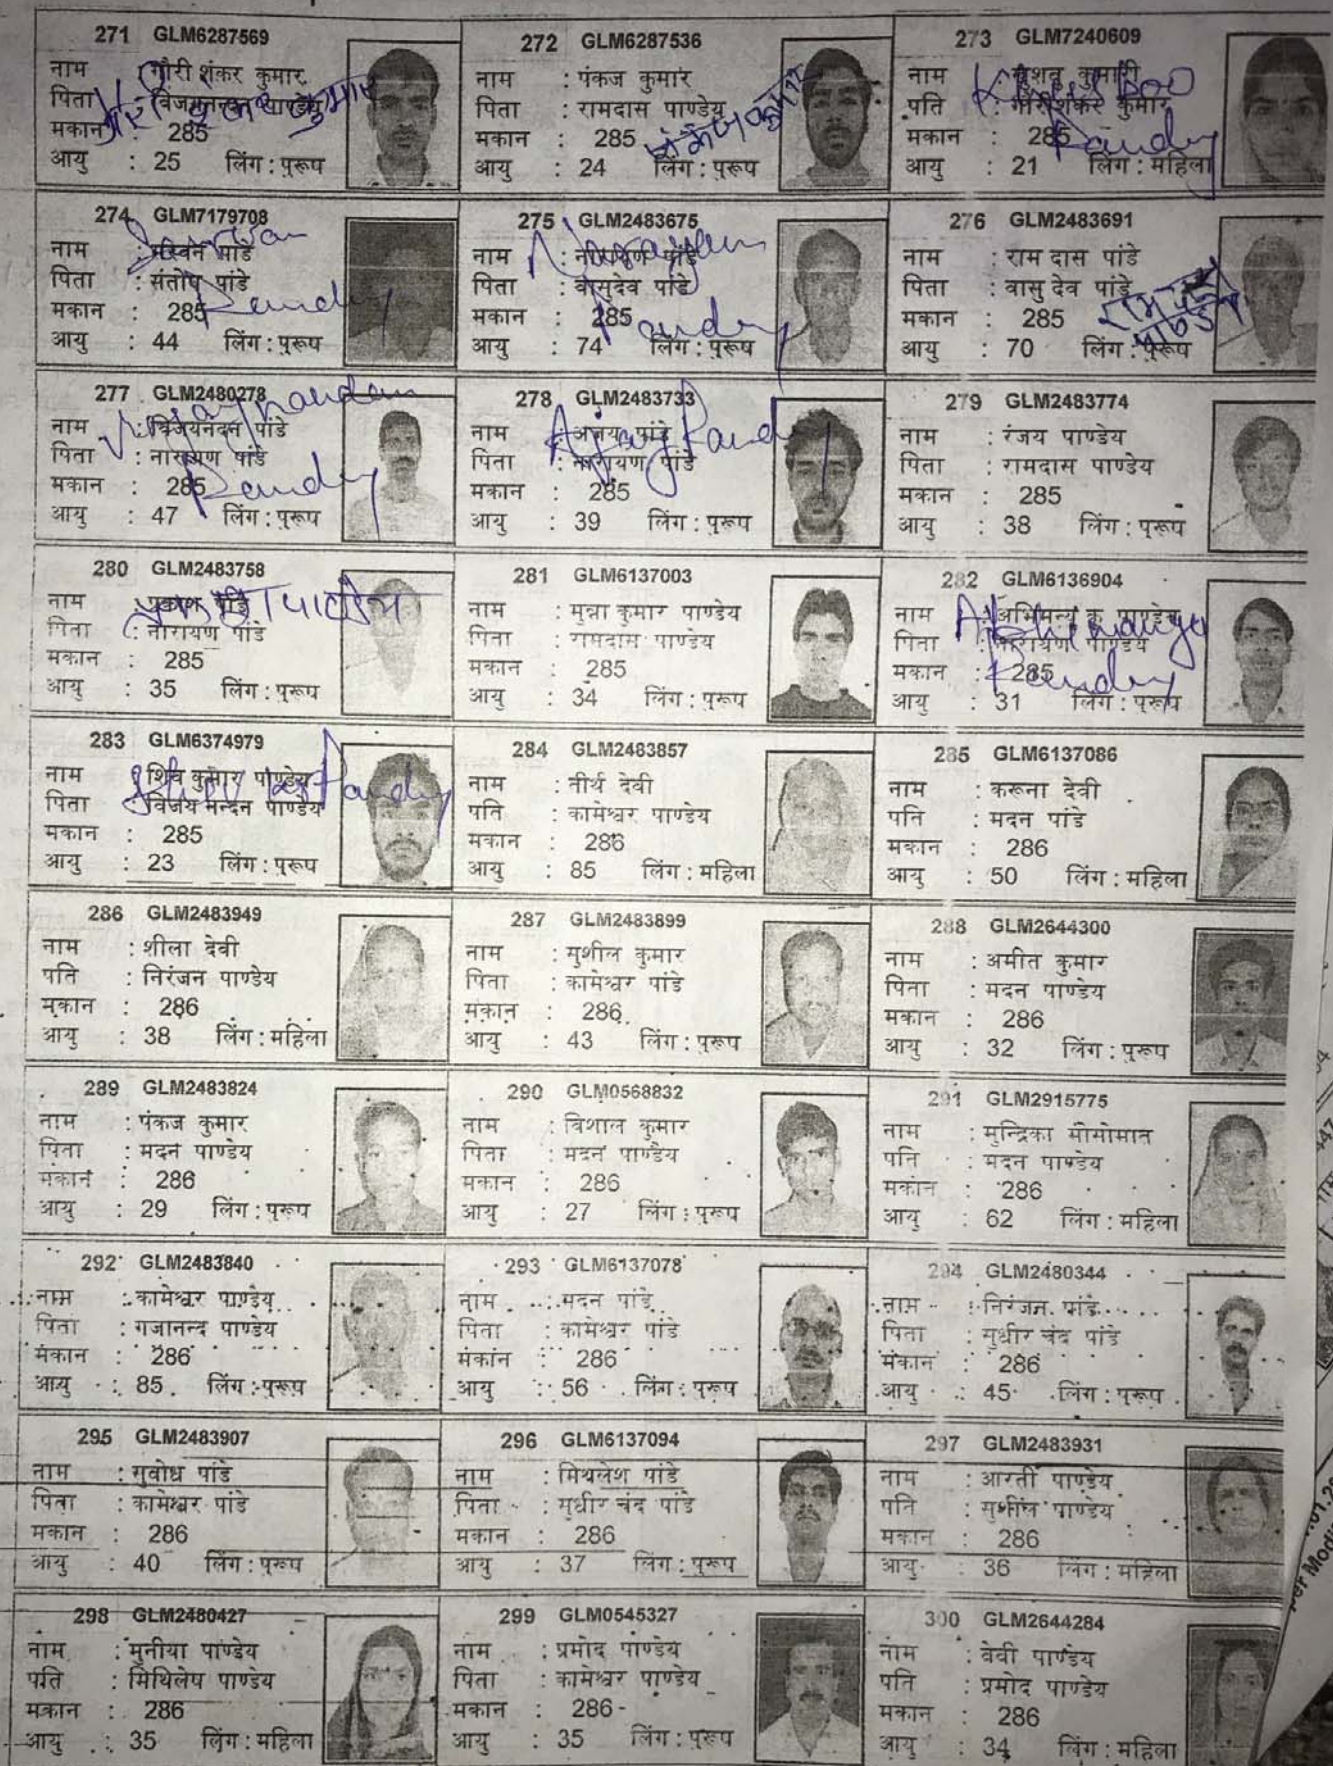 271 GLM6287569
नाम : गौरी शंकर कुमार
पिता : विजयनन्दन पाण्डेय
मकान : 285
आयु : 25 लिंग : पुरूष
गौरी शंकर कुमार
272 GLM6287536
नाम : पंकज कुमार
पिता : रामदास पाण्डेय
मकान : 285
आयु : 24 लिंग : पुरूष
पंकज कुमार
273 GLM7240609
नाम : खुशबू कुमारी
पति : गौरीशंकर कुमार
मकान : 285
आयु : 21 लिंग : महिला
Pandey
274 GLM7179708
नाम : पांडे
पिता : संतोष पांडे
मकान : 285
आयु : 44 लिंग : पुरूष
Pandey
275 GLM2483675
नाम : नारायण पांडे
पिता : वासुदेव पांडे
मकान : 285
आयु : 74 लिंग : पुरूष
Narayan
Pandey
276 GLM2483691
नाम : राम दास पांडे
पिता : वासु देव पांडे
मकान : 285
आयु : 70 लिंग : पुरूष
277 GLM2480278
नाम : विजयनंदन पांडे
पिता : नारायण पांडे
मकान : 285
आयु : 47 लिंग : पुरूष
Vijaynandan
Pandey
278 GLM2483733
नाम : अजय पांडे
पिता : नारायण पांडे
मकान : 285
आयु : 39 लिंग : पुरूष
Ajay Pandey
279 GLM2483774
नाम : रंजय पाण्डेय
पिता : रामदास पाण्डेय
मकान : 285
आयु : 38 लिंग : पुरूष
280 GLM2483758
नाम : प्रकाश पांडे
पिता : नारायण पांडे
मकान : 285
आयु : 35 लिंग : पुरूष
प्रकाश पाण्डेय
281 GLM6137003
नाम : मुन्ना कुमार पाण्डेय
पिता : रामदास पाण्डेय
मकान : 285
आयु : 34 लिंग : पुरूष
282 GLM6136904
नाम : अभिमन्यु कु पाण्डेय
पिता : नारायण पाण्डेय
मकान : 285
आयु : 31 लिंग : पुरूष
Pandey
283 GLM6374979
नाम : शिव कुमार पाण्डेय
पिता : विजय नन्दन पाण्डेय
मकान : 285
आयु : 23 लिंग : पुरूष
Pandey
284 GLM2483857
नाम : तीर्थ देवी
पति : कामेश्वर पाण्डेय
मकान : 286
आयु : 85 लिंग : महिला
285 GLM6137086
नाम : करूना देवी
पति : मदन पांडे
मकान : 286
आयु : 50 लिंग : महिला
286 GLM2483949
नाम : शीला देवी
पति : निरंजन पाण्डेय
मकान : 286
आयु : 38 लिंग : महिला
287 GLM2483899
नाम : सुशील कुमार
पिता : कामेश्वर पांडे
मकान : 286
आयु : 43 लिंग : पुरूष
288 GLM2644300
नाम : अमीत कुमार
पिता : मदन पाण्डेय
मकान : 286
आयु : 32 लिंग : पुरूष
289 GLM2483824
नाम : पंकज कुमार
पिता : मदन पाण्डेय
मकान : 286
आयु : 29 लिंग : पुरूष
290 GLM0568832
नाम : विशाल कुमार
पिता : मदन पाण्डेय
मकान : 286
आयु : 27 लिंग : पुरूष
291 GLM2915775
नाम : मुन्द्रिका मोसोमात
पति : मदन पाण्डेय
मकान : 286
आयु : 62 लिंग : महिला
292 GLM2483840
नाम : कामेश्वर पाण्डेय
पिता : गजानन्द पाण्डेय
मकान : 286
आयु : 85 लिंग : पुरूष
293 GLM6137078
नाम : मदन पांडे
पिता : कामेश्वर पांडे
मकान : 286
आयु : 56 लिंग : पुरूष
294 GLM2480344
नाम : निरंजन पांडे
पिता : सुधीर चंद पांडे
मकान : 286
आयु : 45 लिंग : पुरूष
295 GLM2483907
नाम : सुबोध पांडे
पिता : कामेश्वर पांडे
मकान : 286
आयु : 40 लिंग : पुरूष
296 GLM6137094
नाम : मिथलेश पांडे
पिता : सुधीर चंद पांडे
मकान : 286
आयु : 37 लिंग : पुरूष
297 GLM2483931
नाम : आरती पाण्डेय
पति : सुशील पाण्डेय
मकान : 286
आयु : 36 लिंग : महिला
298 GLM2480427
नाम : मुनीया पाण्डेय
पति : मिथिलेष पाण्डेय
मकान : 286
आयु : 35 लिंग : महिला
299 GLM0545327
नाम : प्रमोद पाण्डेय
पिता : कामेश्वर पाण्डेय
मकान : 286
आयु : 35 लिंग : पुरूष
300 GLM2644284
नाम : बेबी पाण्डेय
पति : प्रमोद पाण्डेय
मकान : 286
आयु : 34 लिंग : महिला